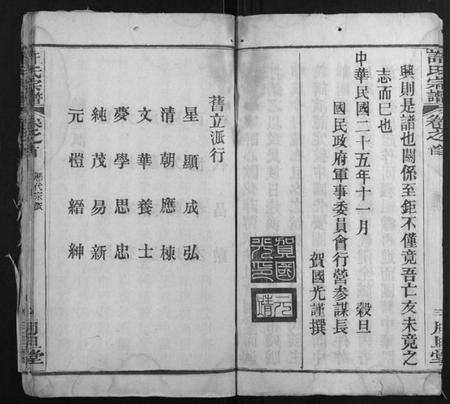 許氏宗譜 卷之首
興則是譜也關係至鉅不僅竟吾亡友未竟之
志而已也
中華民國二十五年十一月 穀旦
國民政府軍事委員會行營參謀長
賀國光謹撰
賀國光印
元靖
舊立派行
星顯成弘
清朝應棟
文華養士
夢學思忠
純茂易新
元愷縉紳
氏宗譜 卷之首